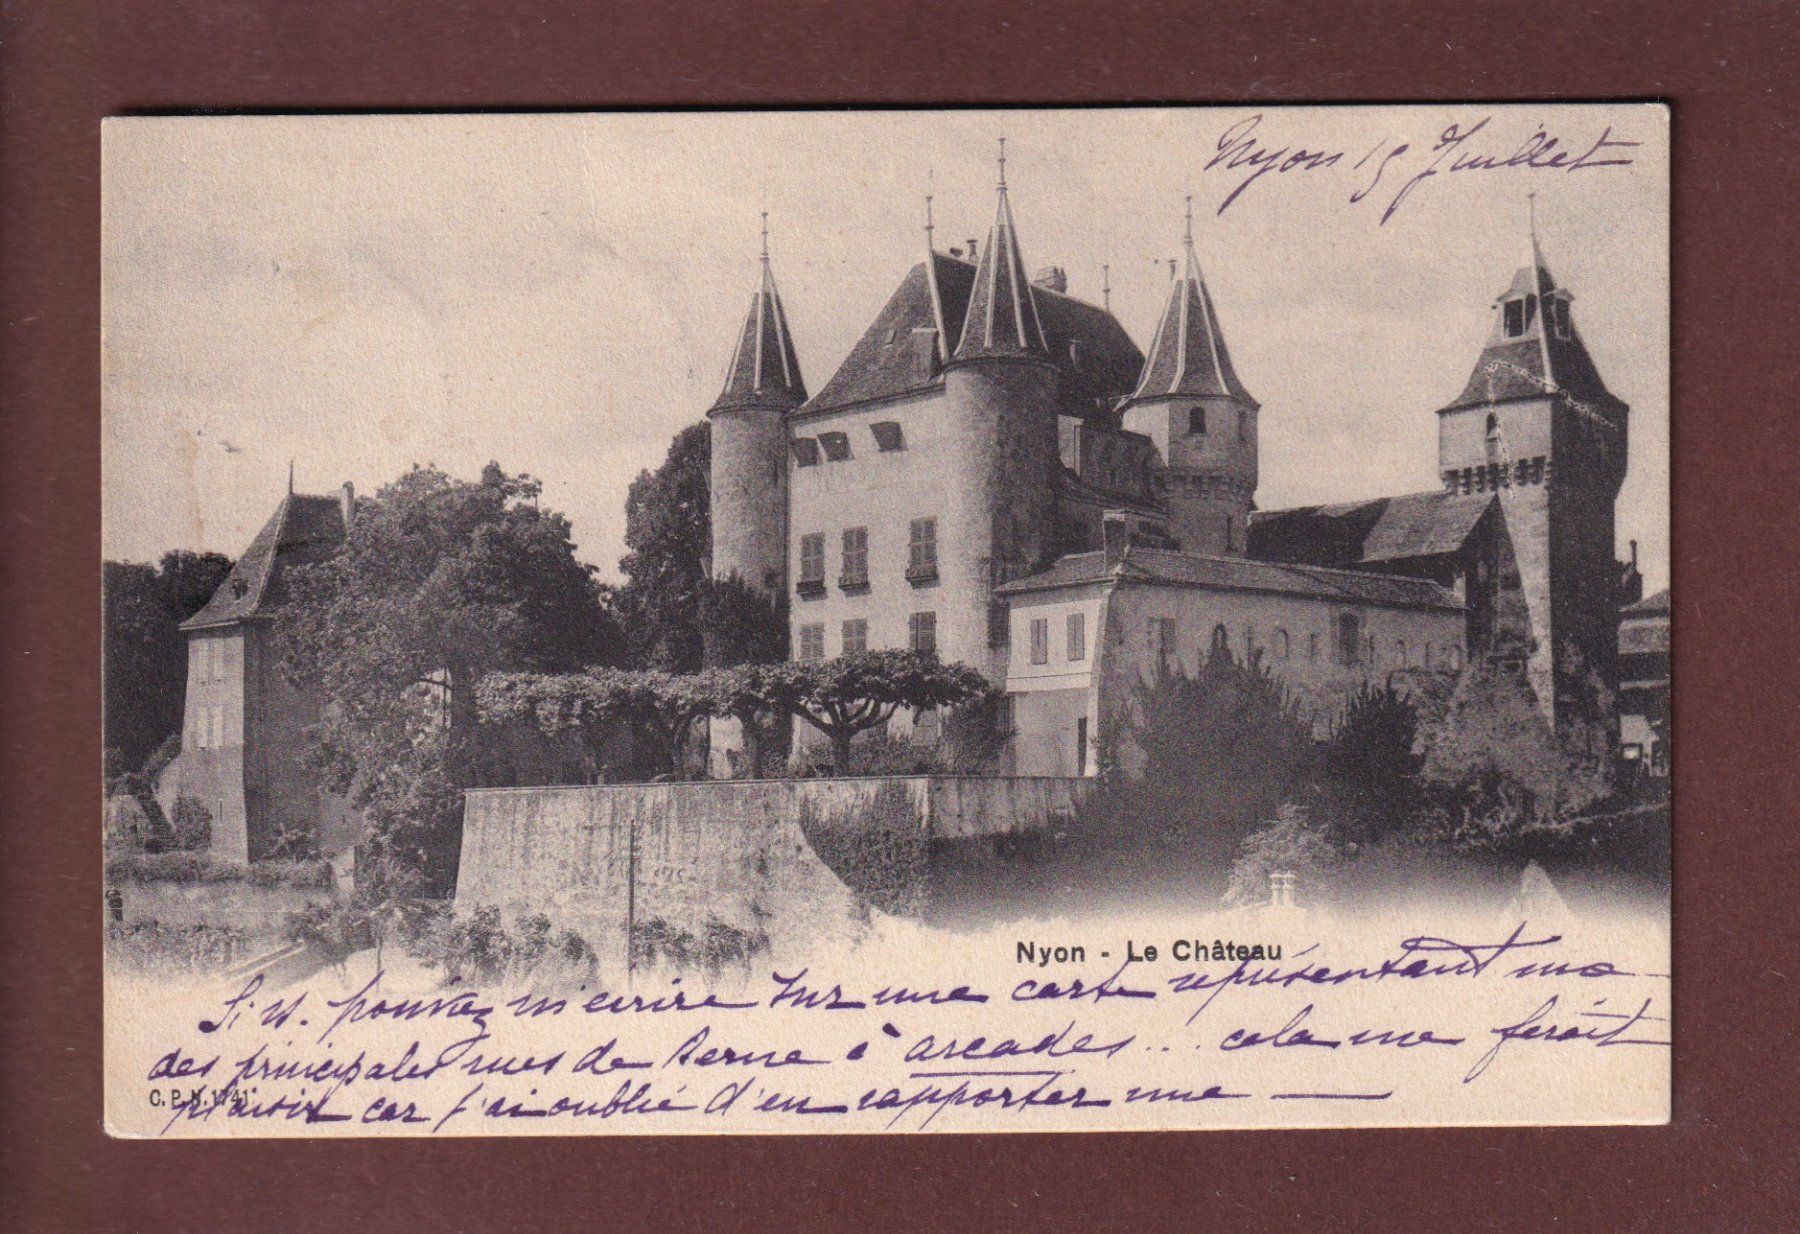 Nyon 15 Juillet
Nyon - Le Château
Si v. pouviez m'écrire sur une carte représentant une
des principales rues de Berne à arcades... cela me ferait
plaisir car j'ai oublié d'en rapporter une —
C. P. N. 1141